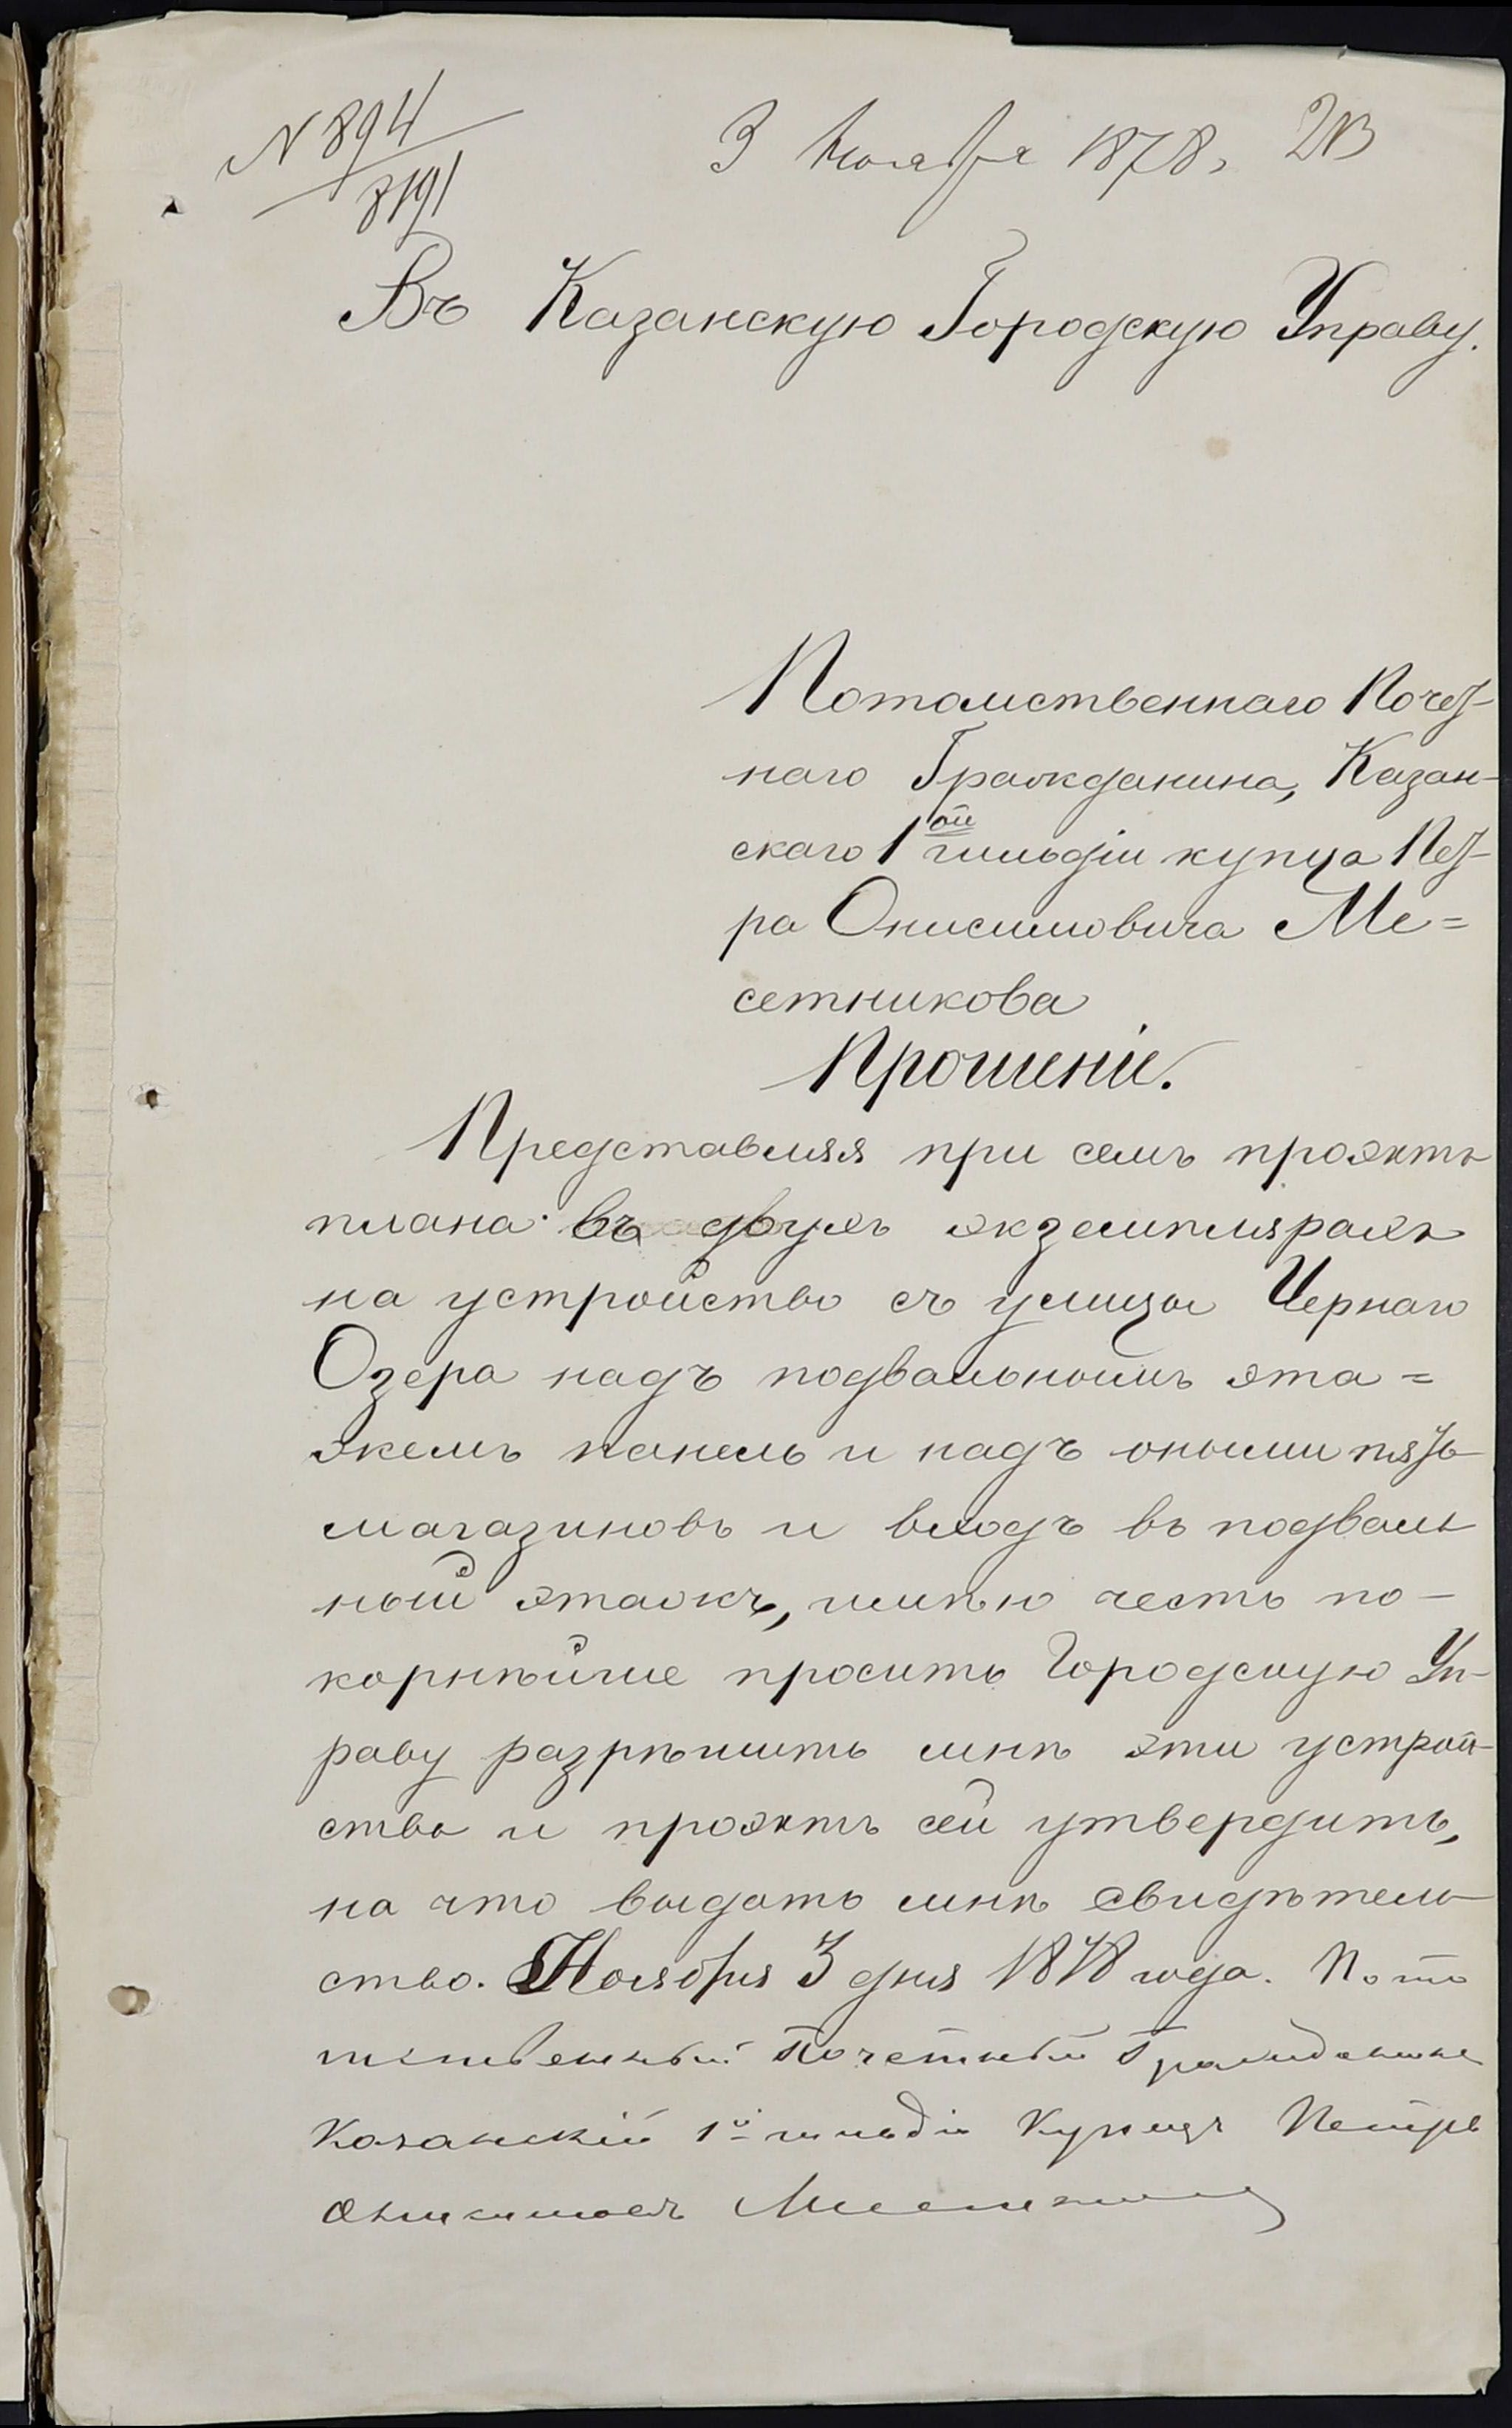 N 894
3 Ноября 1878,
8191
Въ Казанскую Городскую Управу.
Потомственнаго Почет-
наго Гражданина, Казан-
скаго 1ой гильдіи купца Пет-
ра Онисимовича Ме=
сетникова
Прошеніе.
Представляя при семъ проэктъ
плана въ двухъ экземплярахъ
на устройство съ улицы Чернаго
Озера надъ подвальнымъ эта=
жемъ панель и надъ оными пять
магазиновъ и входъ въ подваль
ный этажъ, имѣю честь по-
корнѣйше просить Городскую Уп-
раву разрѣшить мнѣ эти устрой-
ства и проэктъ сей утвердить,
на что выдать мнѣ свидѣтель
ство. Ноября 3 дня 1878 года. Пото
мственный Почетный Гражданинъ
Казанскій 1й гильдіи Купецъ Петръ